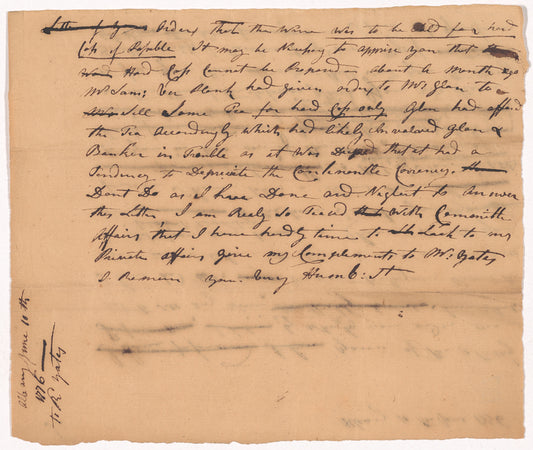 Orders that the Wine was to be Sold for hard
Cash if Possable It may be Nessesary to apprise you that
Word Hard Cash Cannot be Proposed on about a Month ago
Mr Saml: Ver Plank had given orders to Mr Glen to
Sell Some Tea for hard Cash only Glen had affixd
the Tea Accordingly which had likely Invaloved Glen &
Banker in Trouble as it Was Said that it had a
Tendency to Depreciate the Continentle Corrency.
Dont Do as I have Done and Neglect to Answer
this Letter I am Realy So Teaced With Committe
Affairs that I have hardly time to Look to my
Private affairs give my Complements to Mr. Yates
I Remain your Very Humb: St
Albany June 10th
1776
To R Yates